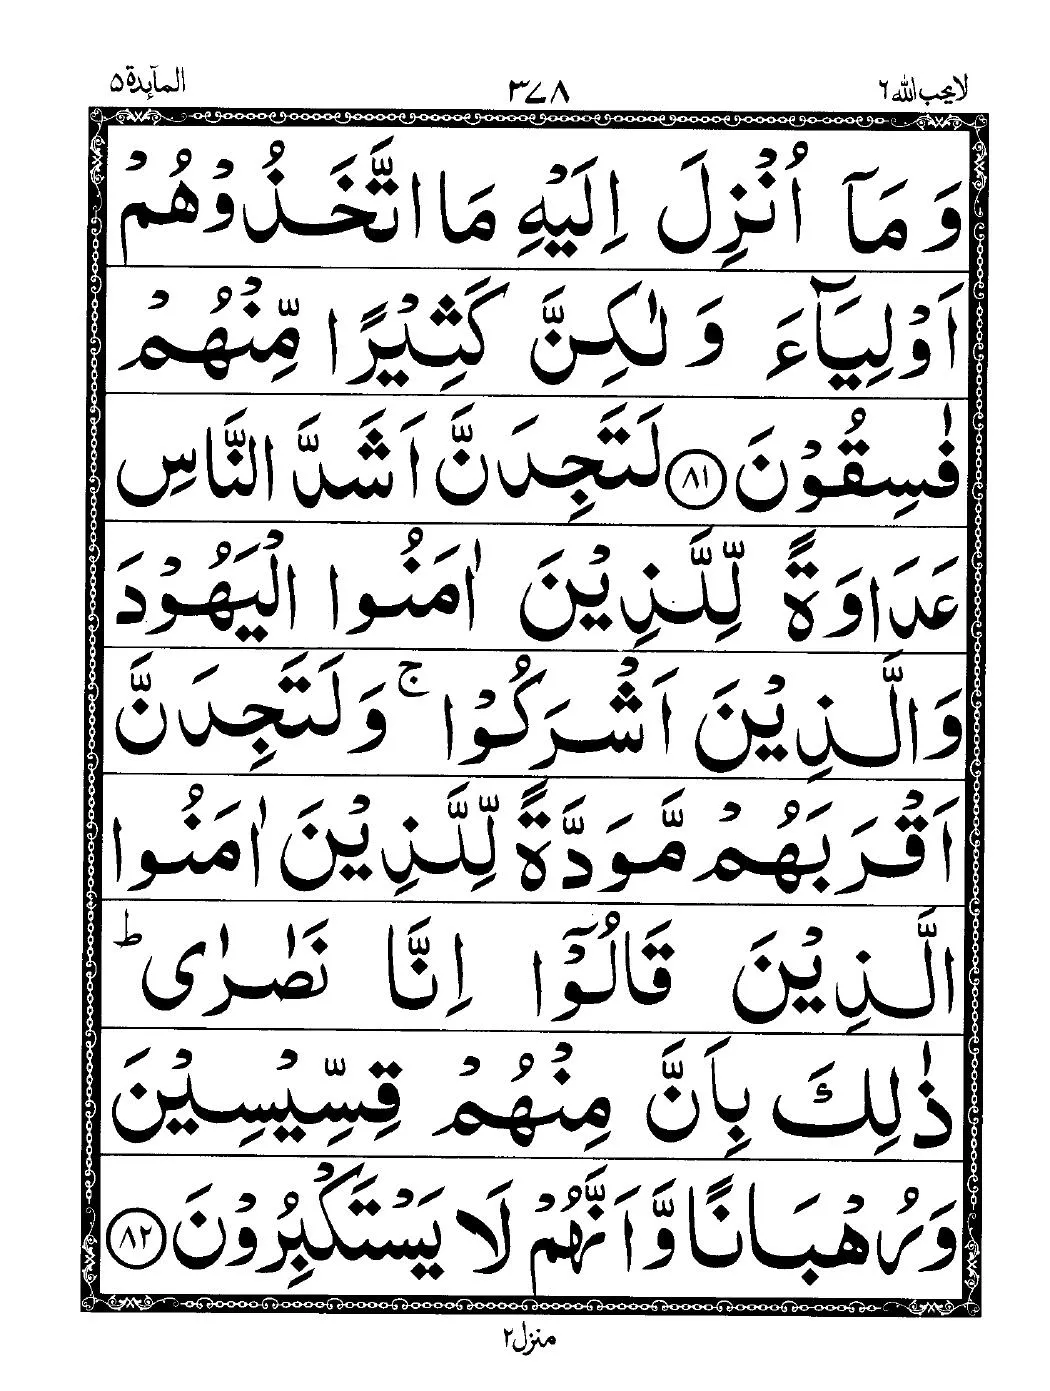 لا يحب الله ٦
٣٧٨
المآىِٕدة ٥
وَ مَاۤ اُنْزِلَ اِلَيْهِ مَا اتَّخَذُوْهُمْ
اَوْلِيَآءَ وَ لٰكِنَّ كَثِيْرًا مِّنْهُمْ
فٰسِقُوْنَ ٨١ لَتَجِدَنَّ اَشَدَّ النَّاسِ
عَدَاوَةً لِّلَّذِيْنَ اٰمَنُوا الْيَهُوْدَ
وَالَّذِيْنَ اَشْرَكُوْا ۚ وَلَتَجِدَنَّ
اَقْرَبَهُمْ مَّوَدَّةً لِّلَّذِيْنَ اٰمَنُوا
الَّذِيْنَ قَالُوْۤا اِنَّا نَصٰرٰى ؕ
ذٰلِكَ بِاَنَّ مِنْهُمْ قِسِّيْسِيْنَ
وَرُهْبَانًا وَّاَنَّهُمْ لَا يَسْتَكْبِرُوْنَ ٨٢
منزل ٢